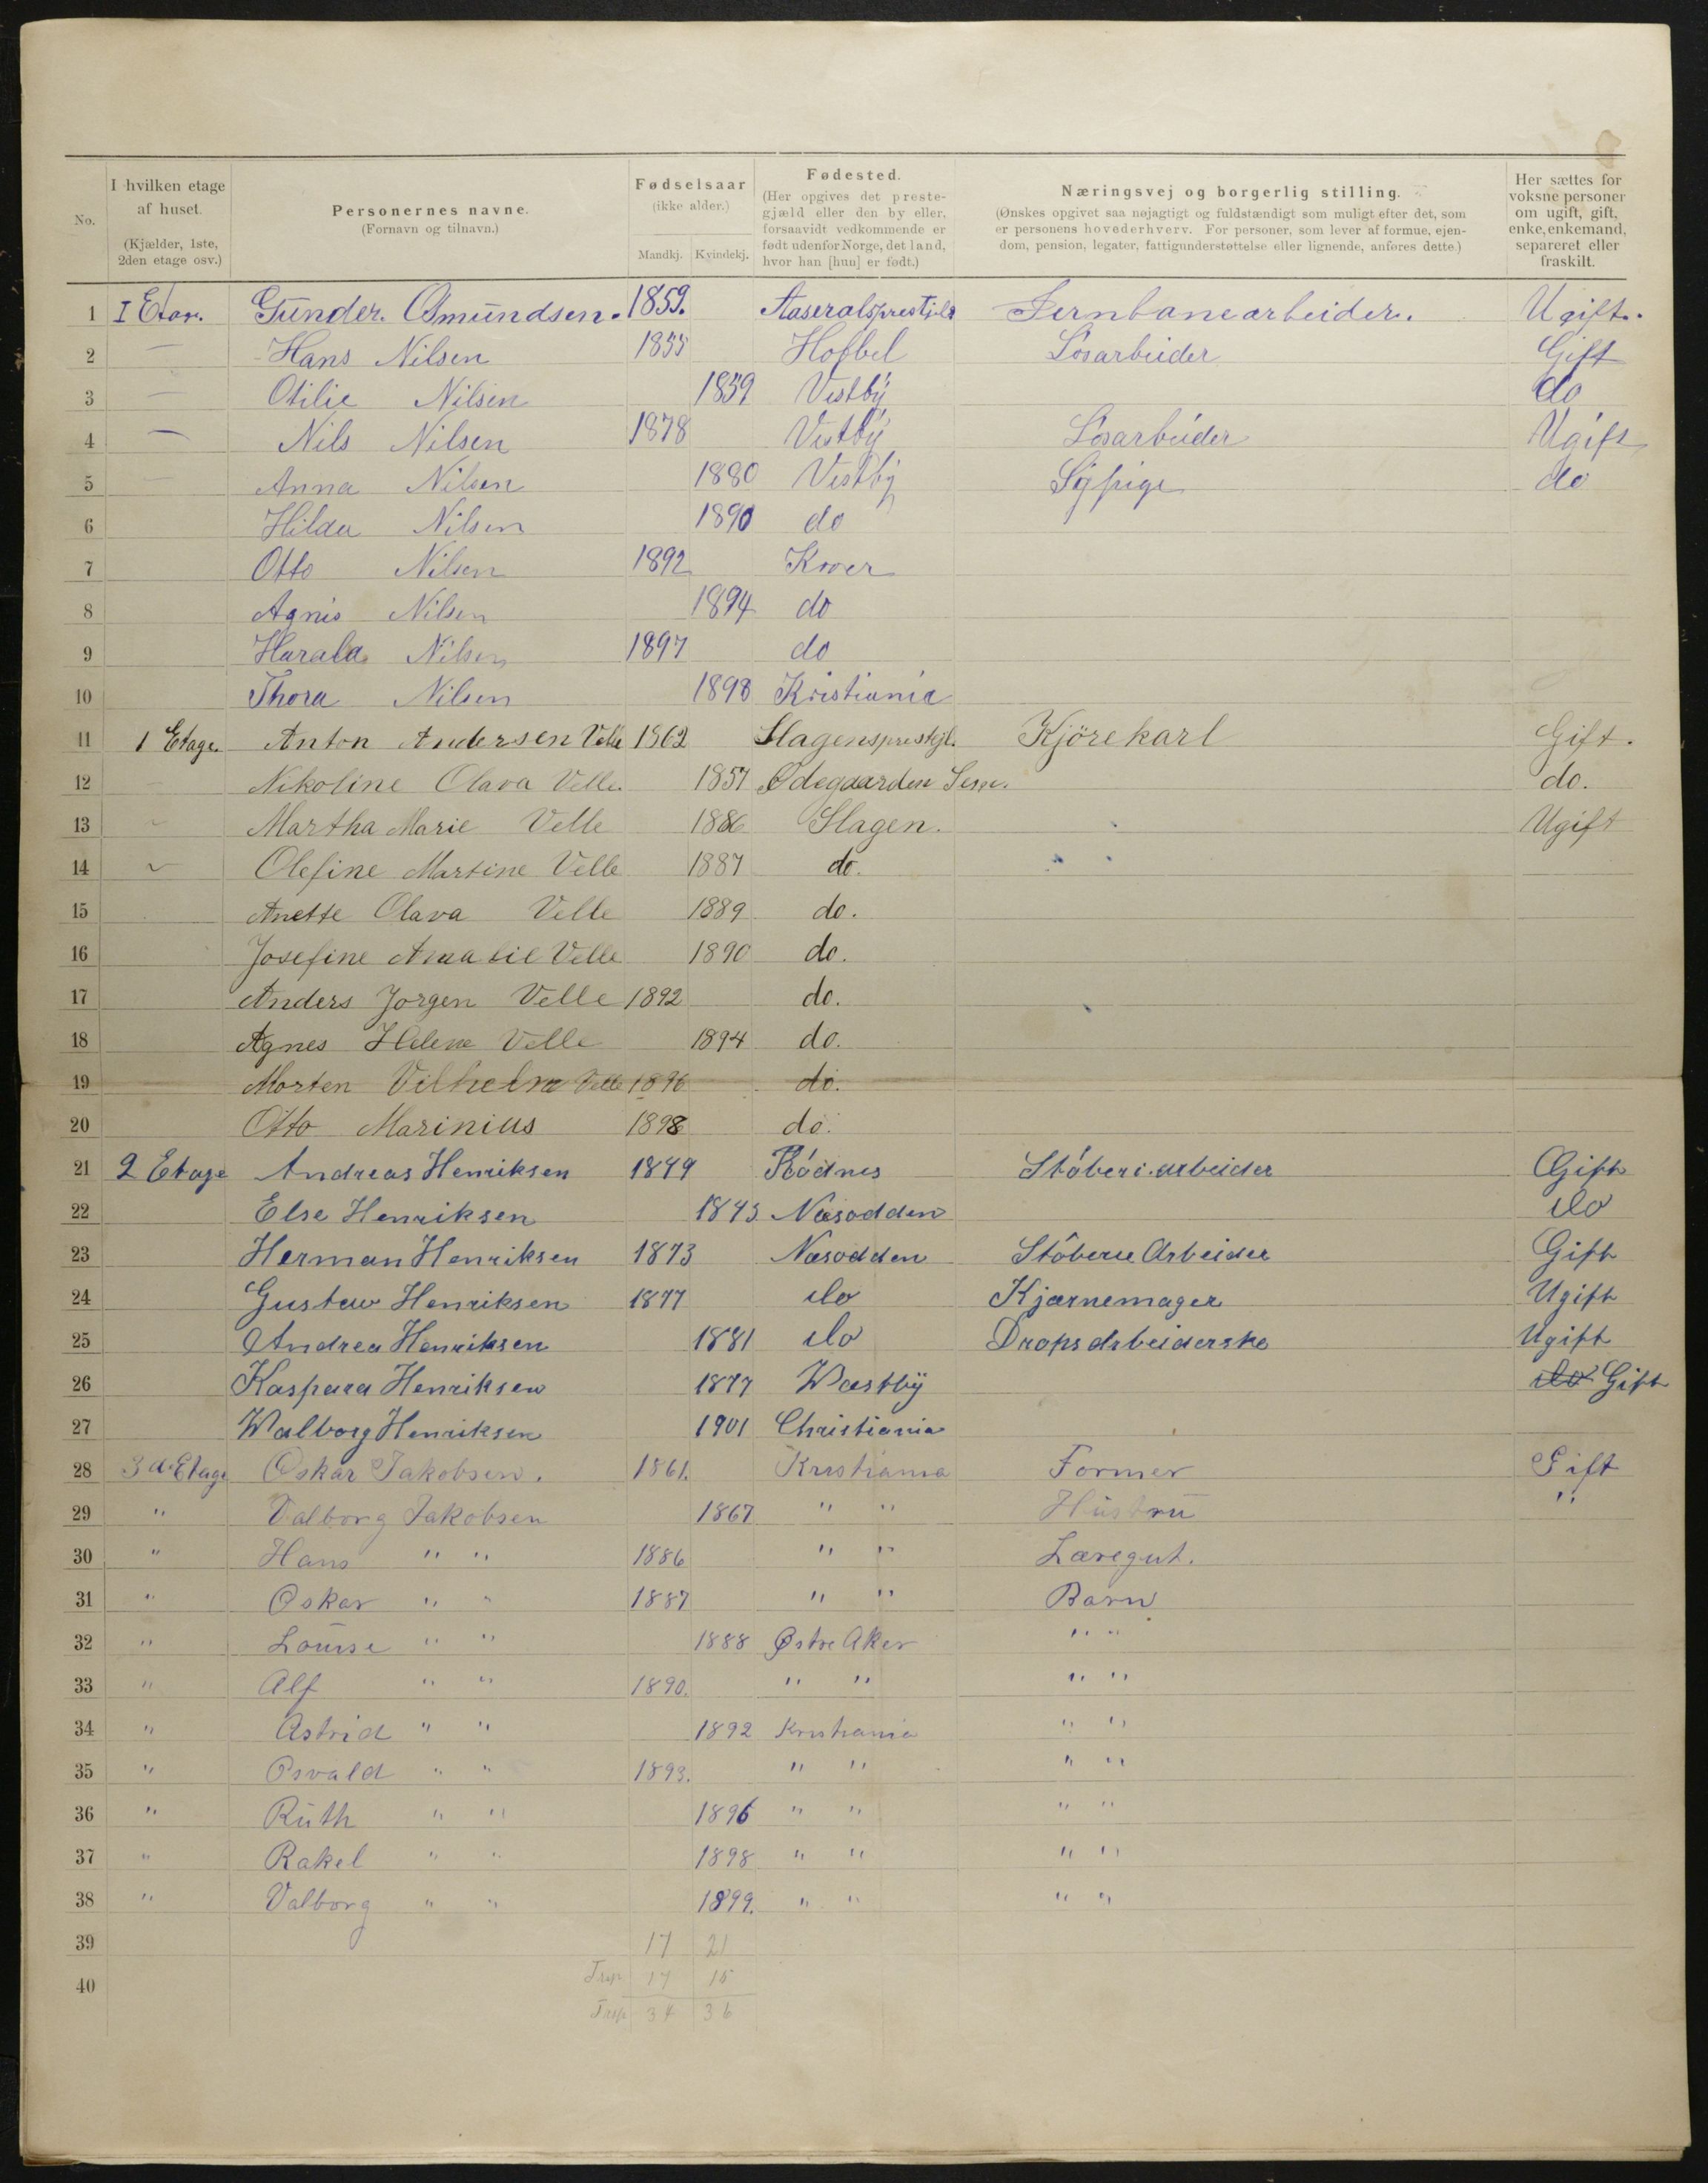 No.
I hvilken etage
af huset.
(Kjælder, 1ste,
2den etage osv.)
Personernes navne.
(Fornavn og tilnavn.)
Fødselsaar
(ikke alder.)
Mandkj. Kvindekj.
Fødested.
(Her opgives det preste-
gjæld eller den by eller,
forsaavidt vedkommende er
født udenfor Norge, det land,
hvor han [hun] er født.)
Næringsvej og borgerlig stilling.
(Ønskes opgivet saa nøjagtigt og fuldstændigt som muligt efter det, som
er personens hovederhverv. For personer, som lever af formue, ejen-
dom, pension, legater, fattigunderstøttelse eller lignende, anføres dette.)
Her sættes for
voksne personer
om ugift, gift,
enke, enkemand,
separeret eller
fraskilt.
1 I Etar. Gunder. Osmundsen. 1859. Aaseralsprestjeld Jernbanearbeider. Ugift.
2 — Hans Nilsen 1855 Hofbel Løsarbeider Gift
3 — Otilie Nilsen 1859 Vestby do
4 — Nils Nilsen 1878 Vestby Løsarbeider Ugift
5 — Anna Nilsen 1880 Vestby Sypige do
6 Hilda Nilsen 1890 do
7 Otto Nilsen 1892 Kroer
8 Agnis Nilsen 1894 do
9 Harald Nilsen 1897 do
10 Thora Nilsen 1898 Kristiania
11 1 Etage. Anton Andersen Velle 1862 Slagensprestejl. Kjörekarl Gift.
12 Nikoline Olava Velle 1857 Ødegaarden Sem. do.
13 Martha Marie Velle 1886 Slagen. Ugift
14 Olefine Martine Velle 1887 do.
15 Anette Olava Velle 1889 do.
16 Josefine Amalie Velle 1890 do.
17 Anders Jorgen Velle 1892 do.
18 Agnes Helene Velle 1894 do.
19 Morten Vilhelm Velle 1896 do.
20 Otto Marinius 1898 do.
21 2 Etage Andreas Henriksen 1849 Rödnes Stöberi arbeider Gift
22 Else Henriksen 1843 Næsodden do
23 Herman Henriksen 1873 Næsodden Stöberie Arbeider Gift
24 Gustaw Henriksen 1877 do Kjærnemager Ugift
25 Andrea Henriksen 1881 do Dropsarbeiderske Ugift
26 Kaspara Henriksen 1877 Wæstby do Gift
27 Walborg Henriksen 1901 Christiania
28 3d. Etage Oskar Jakobsen. 1861. Kristiania Former Gift
29 " Valborg Jakobsen 1867 " " Hustru "
30 " Hans " " 1886 " " Læregut.
31 " Oskar " " 1887 " " Barn
32 " Louise " " 1888 Østre Aker " "
33 " Alf " " 1890. " " " "
34 " Astrid " " 1892 Kristiania " "
35 " Osvald " " 1893. " " " "
36 " Ruth " " 1896 " " " "
37 " Rakel " " 1898 " " " "
38 " Valborg " " 1899. " " " "
39 17 21
40 Trsp 17 15
Trsp 34 36